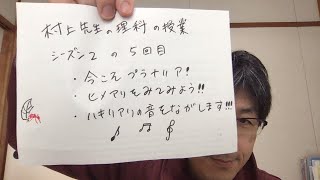 村上先生の理科の授業
シーズン2 の 5回目
・今こそプラナリア!
・ヒメアリをみてみよう!!
・ハキリアリの音をながします!!!